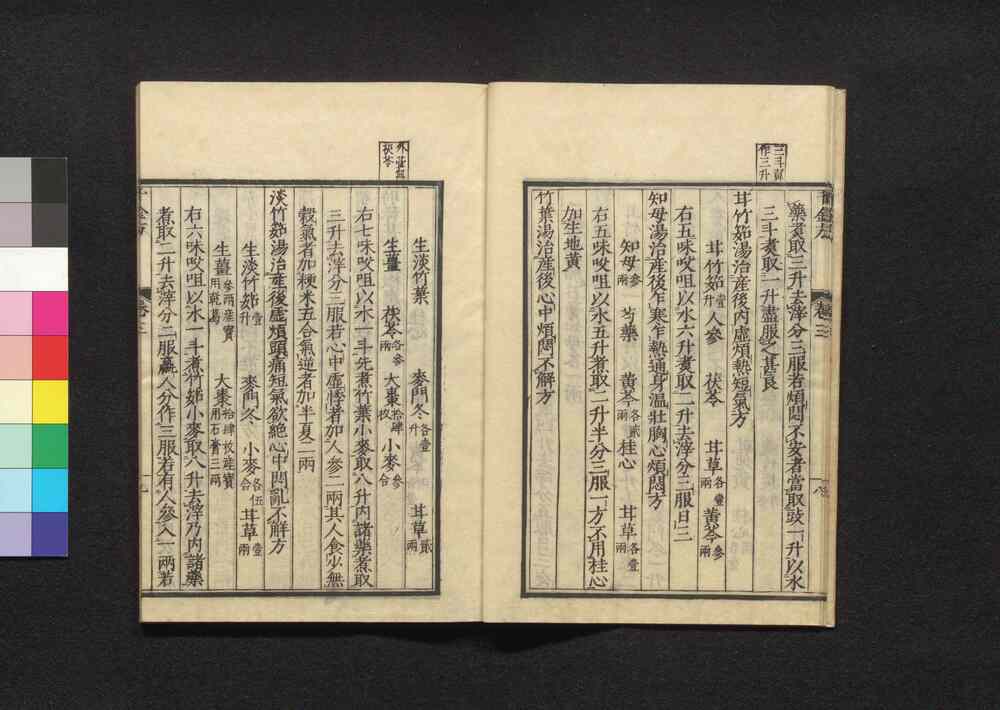 三斗煮
作三升
藥煮取三升去滓分三服若煩悶不安者當取豉一升以水
三斗煮取一升盡服之甚良
甘竹筎湯治產後內虛煩熱短氣方
甘竹筎壹升 人參 茯苓 甘草各壹兩 黃芩參兩
右五味㕮咀以水六升煮取二升去滓分三服日三
知母湯治產後乍寒乍熱通身溫壯胸心煩悶方
知母參兩 芍藥 黃芩各貳兩 桂心 甘草各壹兩
右五味㕮咀以水五升煮取二升半分三服一方不用桂心
加生地黃
竹葉湯治產後心中煩悶不解方
生淡竹葉 麥門冬各壹升 甘草貳兩
茯苓
生薑 茯苓各參兩 大棗拾肆枚 小麥參合
右七味㕮咀以水一斗先煮竹葉小麥取八升內諸藥煮取
三升去滓分三服若心中虛悸者加人參二兩其人食少無
穀氣者加粳米五合氣逆者加半夏二兩
淡竹筎湯治產後虛煩頭痛短氣欲絕心中悶亂不解方
生淡竹筎壹升 麥門冬 小麥各伍合 甘草壹兩
生薑參兩產寶用乾葛 大棗拾肆枚產寶用石膏三兩
右六味㕮咀以水一斗煮竹筎小麥取八升去滓乃內諸藥
煮取二升去滓分二服羸人分作三服若有人參入一兩若